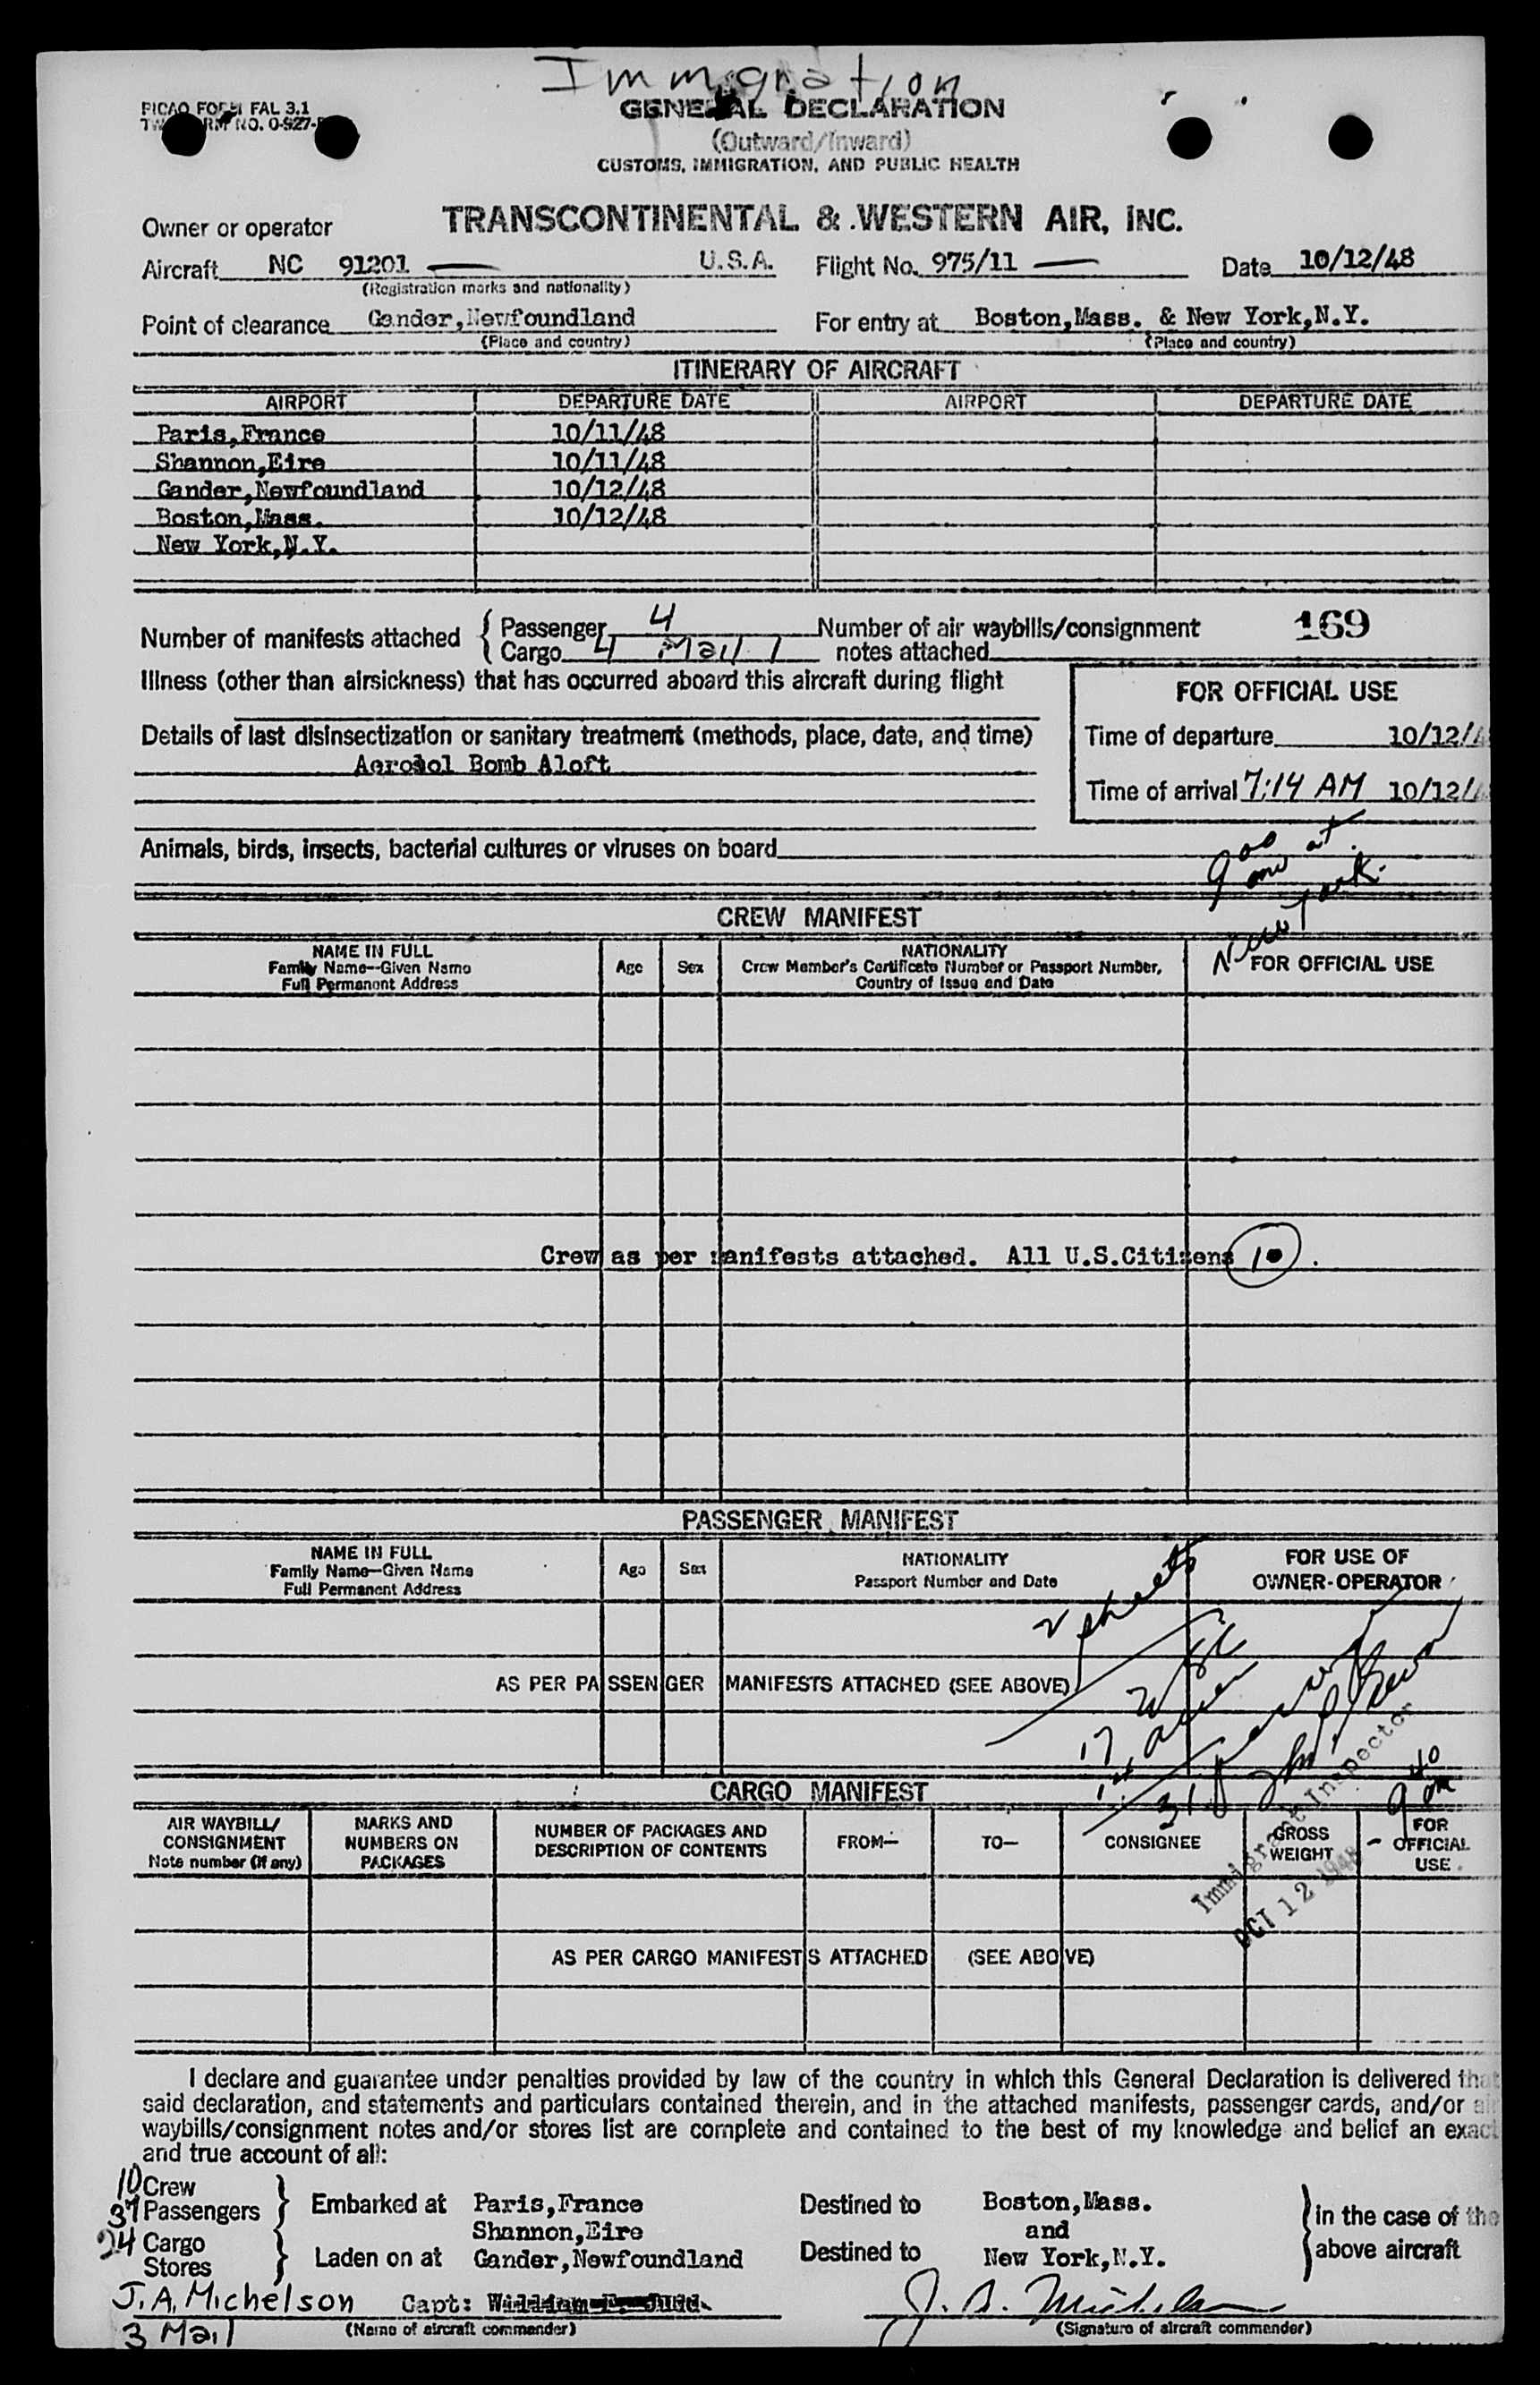 Immigration
PICAO FORM FAL 3.1
GENERAL DECLARATION
(Outward/Inward)
CUSTOMS, IMMIGRATION, AND PUBLIC HEALTH
Owner or operator TRANSCONTINENTAL & WESTERN AIR, INC.
Aircraft NC 91201 U.S.A. Flight No. 975/11 Date 10/12/48
(Registration marks and nationality)
Point of clearance Gander,Newfoundland For entry at Boston,Mass. & New York,N.Y.
(Place and country) (Place and country)
ITINERARY OF AIRCRAFT
AIRPORT DEPARTURE DATE AIRPORT DEPARTURE DATE
Paris,France 10/11/48
Shannon,Eire 10/11/48
Gander,Newfoundland 10/12/48
Boston,Mass. 10/12/48
New York,N.Y.
Number of manifests attached { Passenger 4 Number of air waybills/consignment 169
Cargo 4 Mail 1 notes attached
Illness (other than airsickness) that has occurred aboard this aircraft during flight
FOR OFFICIAL USE
Details of last disinsectization or sanitary treatment (methods, place, date, and time)
Time of departure 10/12/
Aerosol Bomb Aloft
Time of arrival 7:14 AM 10/12/
Animals, birds, insects, bacterial cultures or viruses on board
9 00 am at
New York
CREW MANIFEST
NAME IN FULL
Family Name--Given Name
Full Permanent Address
Age Sex
NATIONALITY
Crew Member's Certificate Number or Passport Number,
Country of Issue and Date
FOR OFFICIAL USE
Crew as per manifests attached. All U.S.Citizens 10 .
PASSENGER MANIFEST
NAME IN FULL
Family Name—Given Name
Full Permanent Address
Age Sex
NATIONALITY
Passport Number and Date
FOR USE OF
OWNER-OPERATOR
2 sheets
AS PER PASSENGER MANIFESTS ATTACHED (SEE ABOVE)
17
31
Immigrant Inspector
OCT 12 1948
9 40 am
CARGO MANIFEST
AIR WAYBILL/
CONSIGNMENT
Note number (if any)
MARKS AND
NUMBERS ON
PACKAGES
NUMBER OF PACKAGES AND
DESCRIPTION OF CONTENTS
FROM— TO— CONSIGNEE
GROSS
WEIGHT
FOR
OFFICIAL
USE
AS PER CARGO MANIFESTS ATTACHED (SEE ABOVE)
I declare and guarantee under penalties provided by law of the country in which this General Declaration is delivered that
said declaration, and statements and particulars contained therein, and in the attached manifests, passenger cards, and/or air
waybills/consignment notes and/or stores list are complete and contained to the best of my knowledge and belief an exact
and true account of all:
10 Crew
37 Passengers } Embarked at Paris,France Destined to Boston,Mass.
Shannon,Eire and
24 Cargo
Stores } Laden on at Gander,Newfoundland Destined to New York,N.Y.
} in the case of the
above aircraft
J.A. Michelson Capt: J. A. Michelson
(Name of aircraft commander) (Signature of aircraft commander)
3 Mail